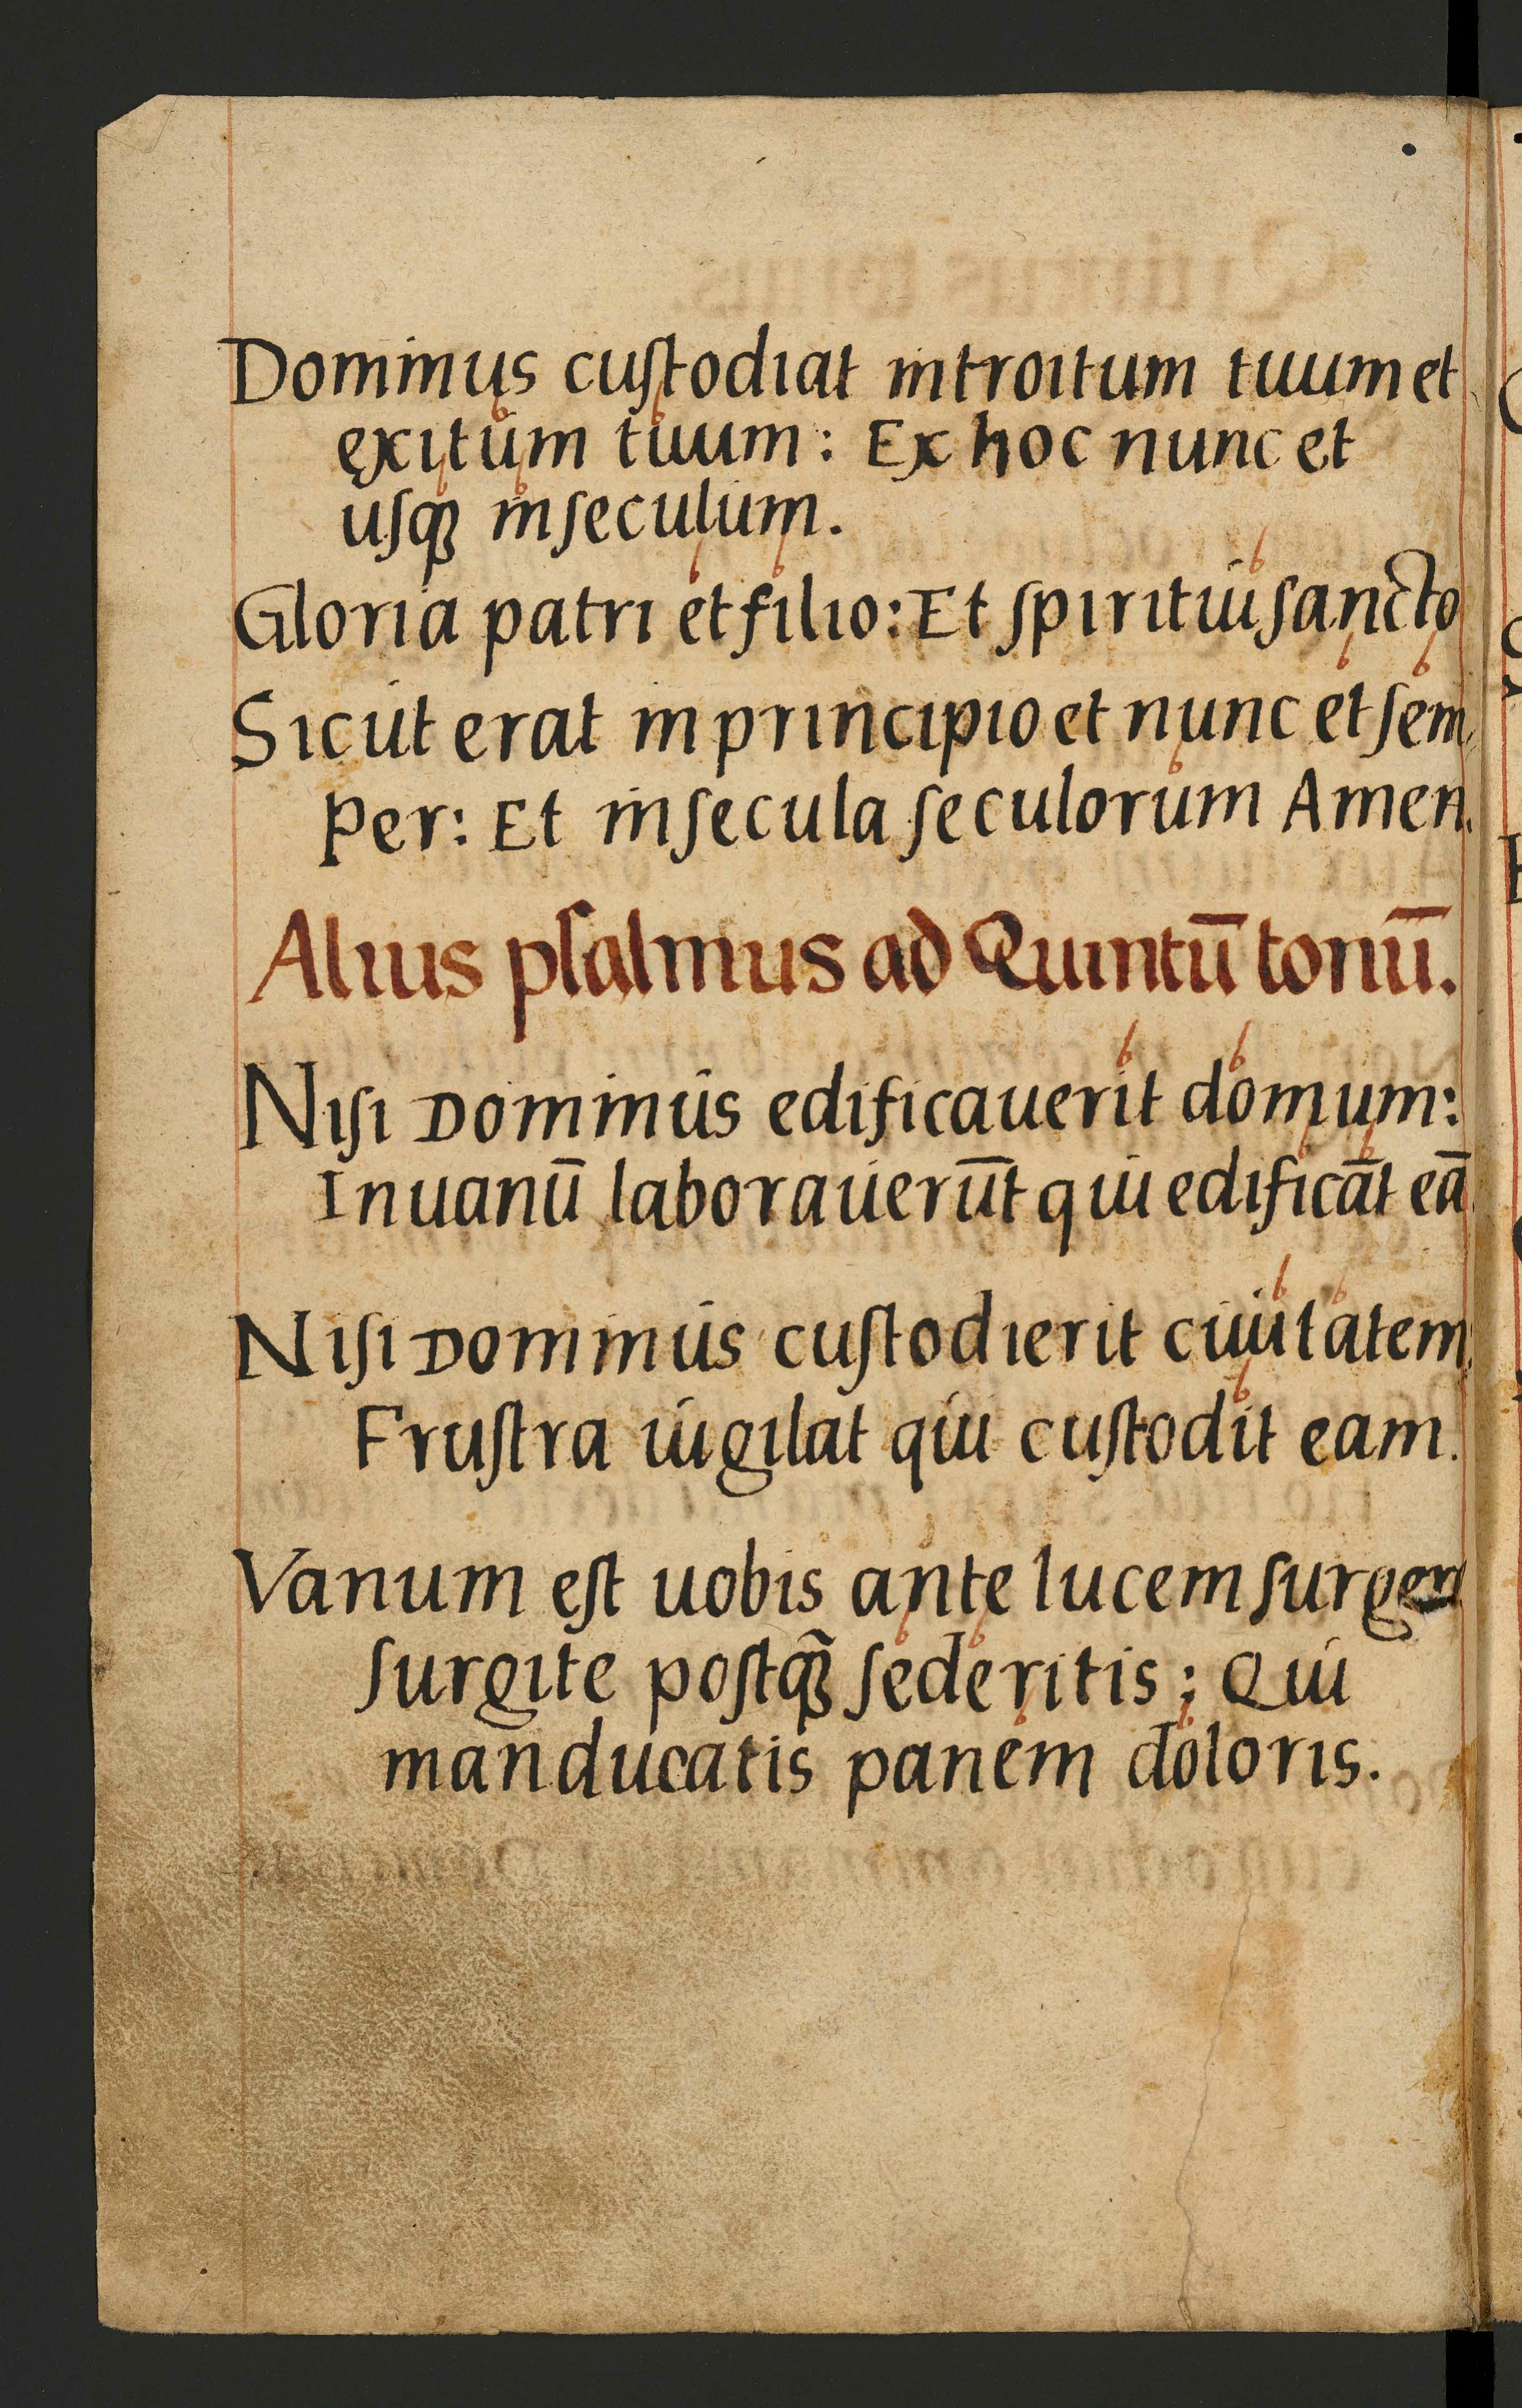 Dominus cuſtodiat introitum tuum et
exitum tuum: Ex hoc nunc et
uſqꝫ inſeculum.
Gloria patri et filio: Et ſpiritui ſancto
Sicut erat in principio et nunc et ſem
per: Et inſecula ſeculorum Amen.
Alius pſalmus ad Quintū tonū.
Niſi Dominus edificauerit domum:
Inuanū laborauerūt qui edificāt eā
Niſi Dominus cuſtodierit ciuitatem:
Fruſtra uigilat qui cuſtodit eam.
Vanum eſt uobis ante lucem ſurgere
ſurgite poſtqꝫ̃ ſederitis; Qui
manducatis panem doloris.